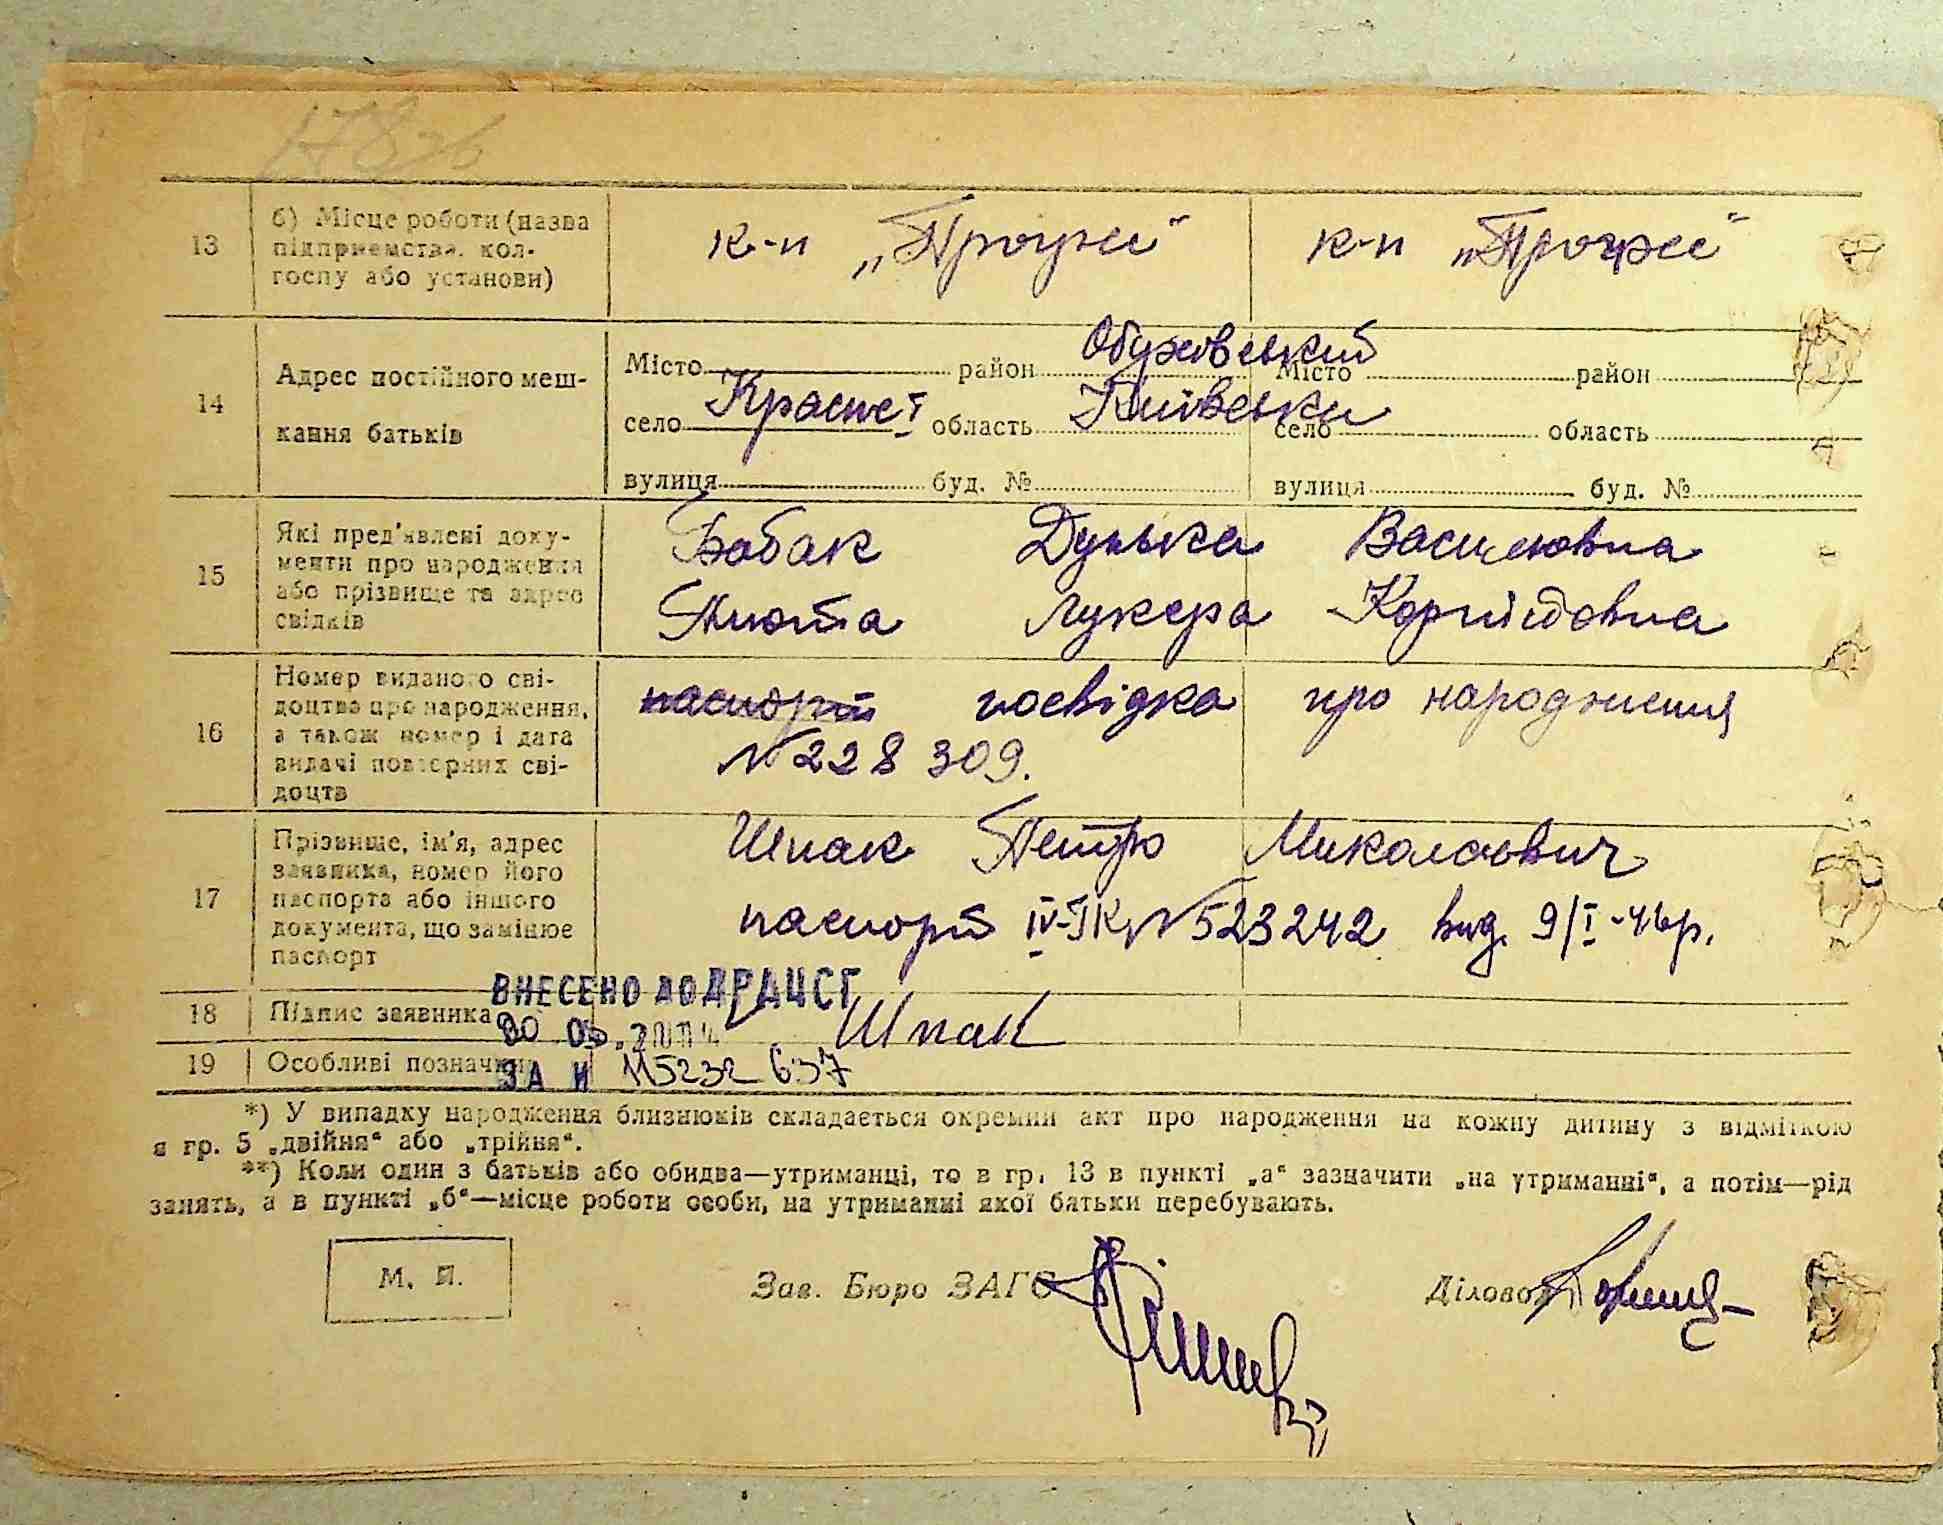 178 зв
13
б) Місце роботи (назва
підприємства, кол-
госпу або установи)
к-п
к-п
14
Адрес постійного меш-
кання батьків
Місто район Обухівський
село Красне I область Київська
вулиця буд. №
Місто район
село область
вулиця буд. №
15
Які пред'явлені доку-
менти про народження
або прізвище та адрес
свідків
Бабак Дунька Василювна
Лукера
16
Номер виданого сві-
доцтва про народження,
а також номер і дата
видачі повторних сві-
доцтв
паспорт посвідка про народження
№ 228 309.
17
Прізвище, ім'я, адрес
заявника, номер його
паспорта або іншого
документа, що замінює
паспорт
Шпак Петро Миколаович
паспорт IV-ТК № 523242 вид. 9/I-46р.
18
Підпис заявника
Шпак
ВНЕСЕНО ДО ДРАЦСГ
19
Особливі позначки
ЗА № 115232 637
*) У випадку народження близнюків складається окремий акт про народження на кожну дитину з відміткою
в гр. 5 „двійня“ або „трійня“.
**) Коли один з батьків або обидва—утриманці, то в гр. 13 в пункті „а“ зазначити „на утриманні“, а потім—рід
занять, а в пункті „б“—місце роботи особи, на утриманні якої батьки перебувають.
М. П.
Зав. Бюро ЗАГС
Діловод